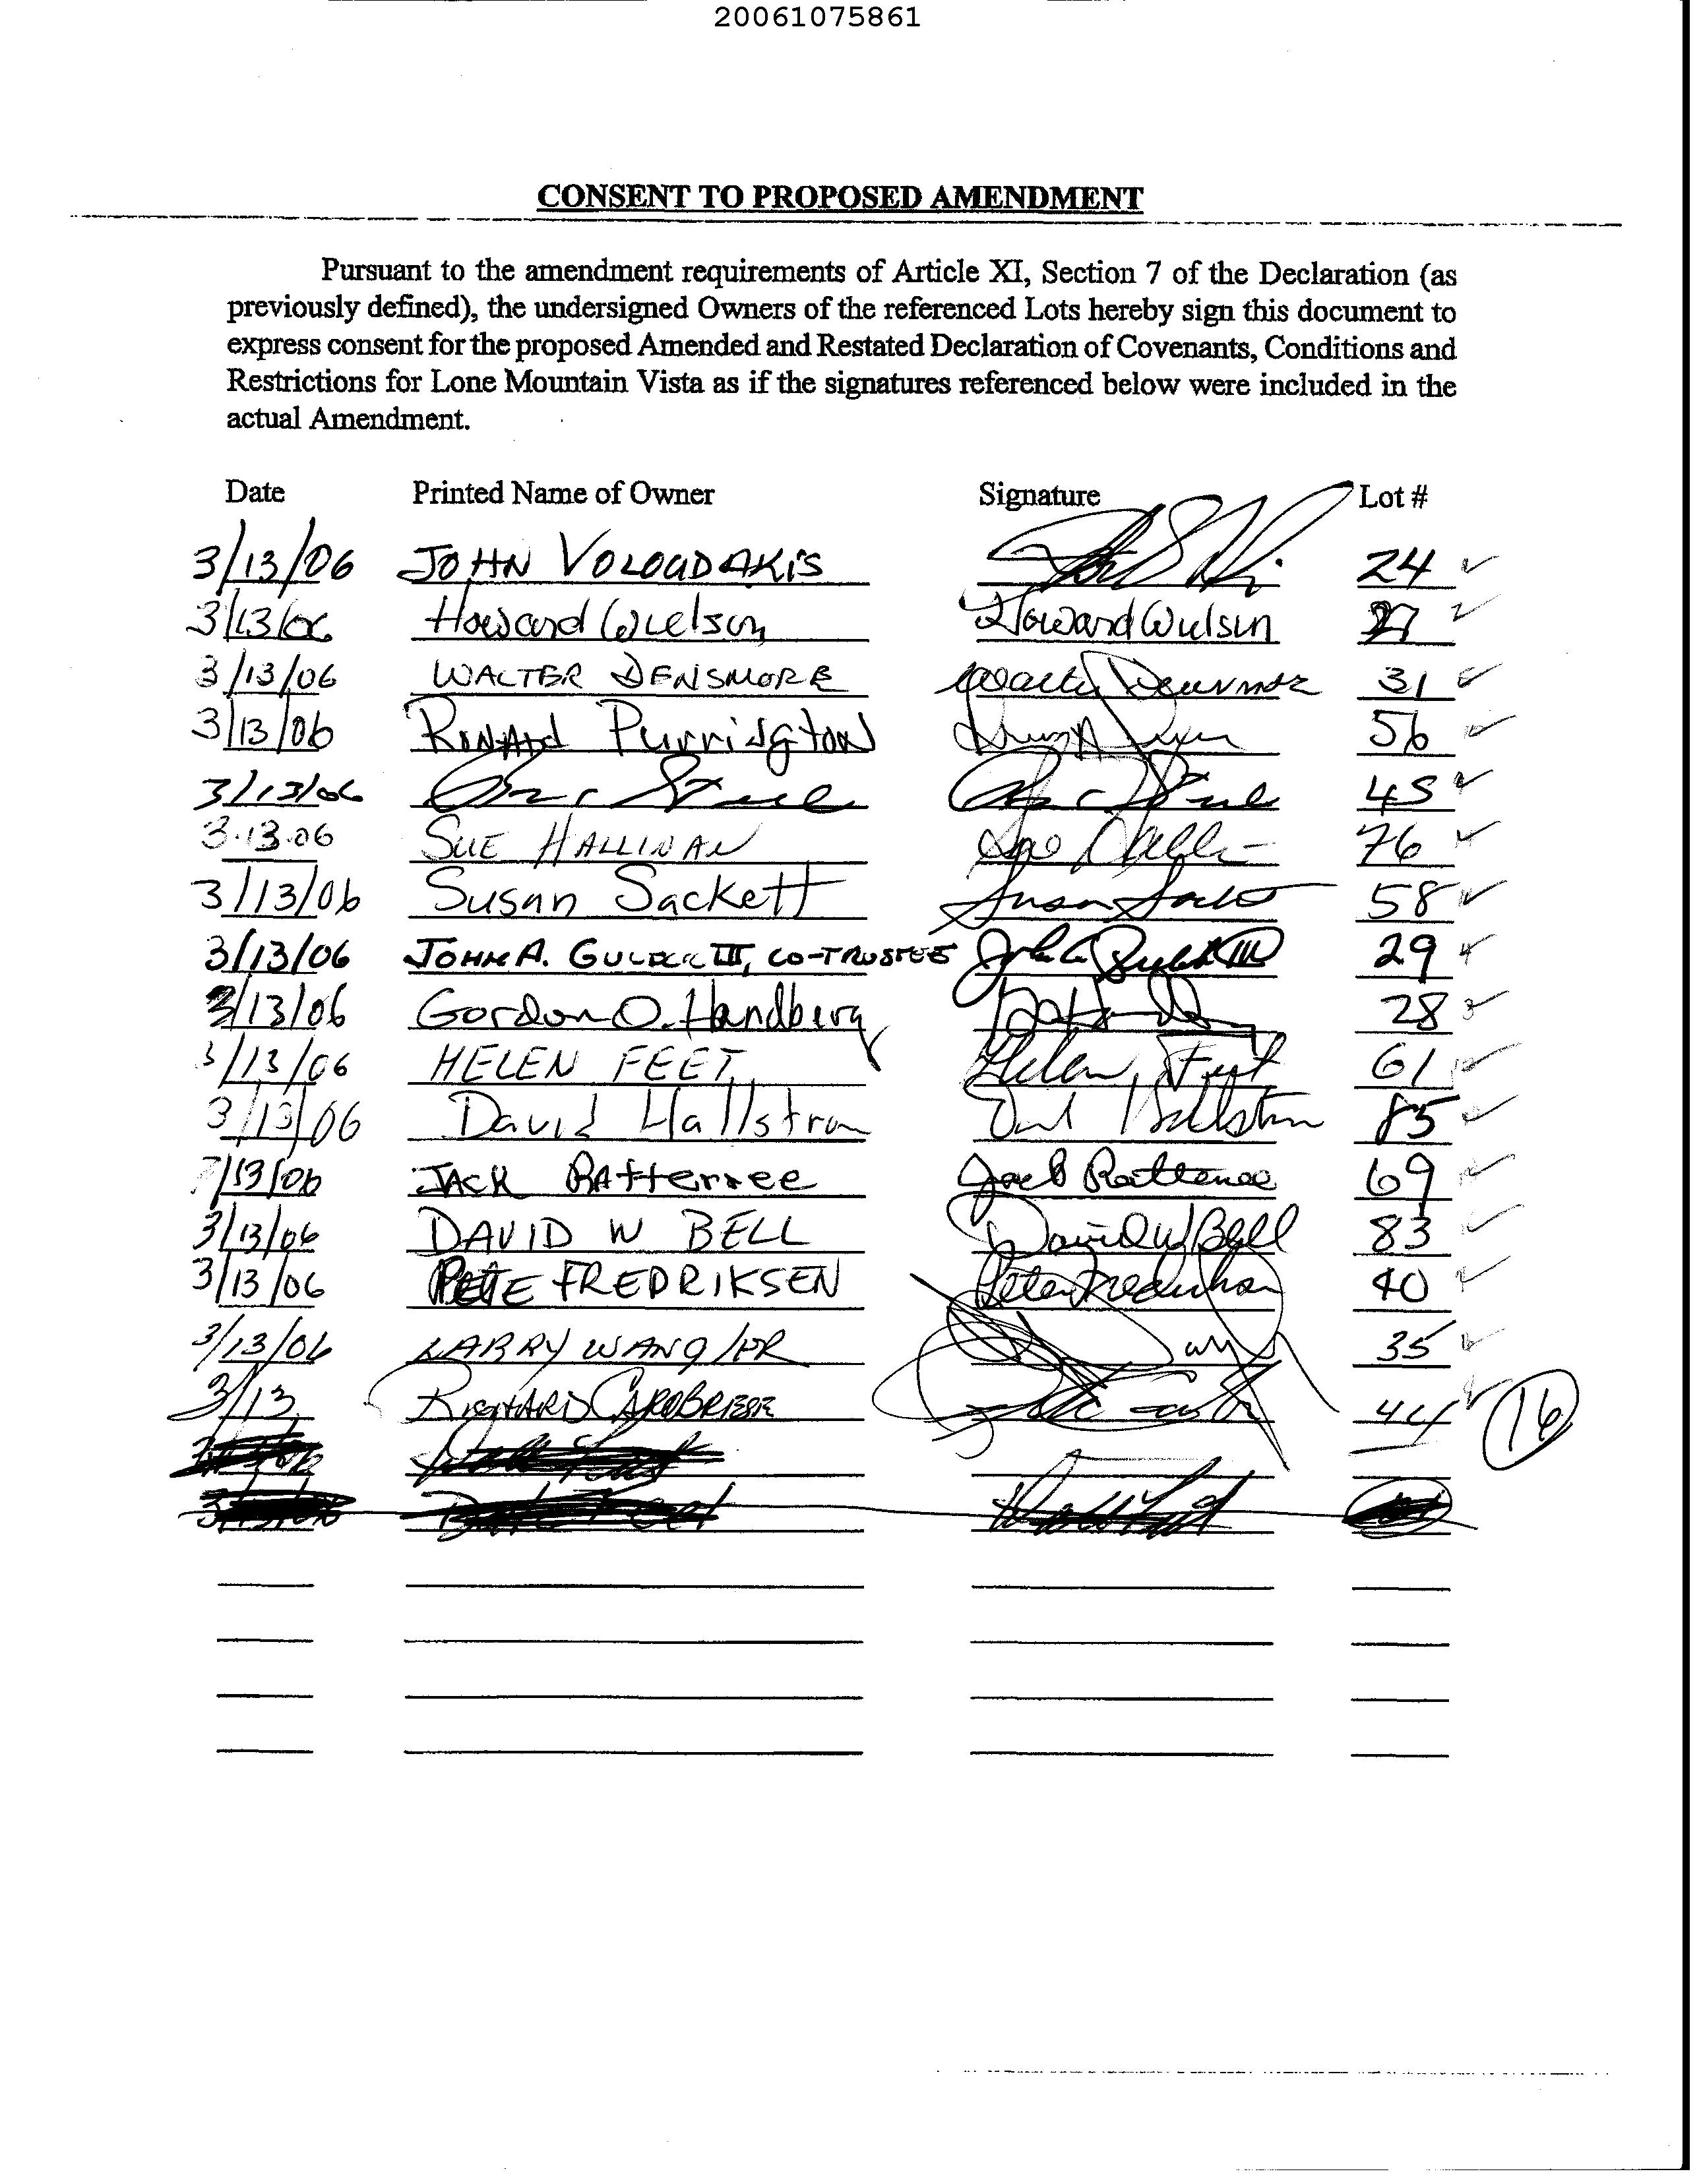 20061075861
CONSENT TO PROPOSED AMENDMENT
Pursuant to the amendment requirements of Article XI, Section 7 of the Declaration (as
previously defined), the undersigned Owners of the referenced Lots hereby sign this document to
express consent for the proposed Amended and Restated Declaration of Covenants, Conditions and
Restrictions for Lone Mountain Vista as if the signatures referenced below were included in the
actual Amendment.
Date Printed Name of Owner Signature Lot #
3/13/06 JOHN VOLOUDAKIS 24
3/13/06 Howard Wulsin Howard Wulsin 27
3/13/06 WALTER DENSMORE Walter Densmore 31
3/13/06 RONALD Purrington 56
3/13/06 45
3.13.06 SUE HALLINAN Sue 76
3/13/06 Susan Sackett Susan 58
3/13/06 JOHN A. III, CO-TRUSTEE John A III 29
3/13/06 Gordon O. Handberg 28
3/13/06 HELEN FEET Helen Feet 61
3/13/06 David Hallstrom 85
3/13/06 JACK RAtterree Jack Ratterree 69
3/13/06 DAVID W BELL David W Bell 83
3/13/06 PETE FREDRIKSEN Peter Fredriksen 40
3/13/06 LARRY WANG 35
3/13 RICHARD 44 16